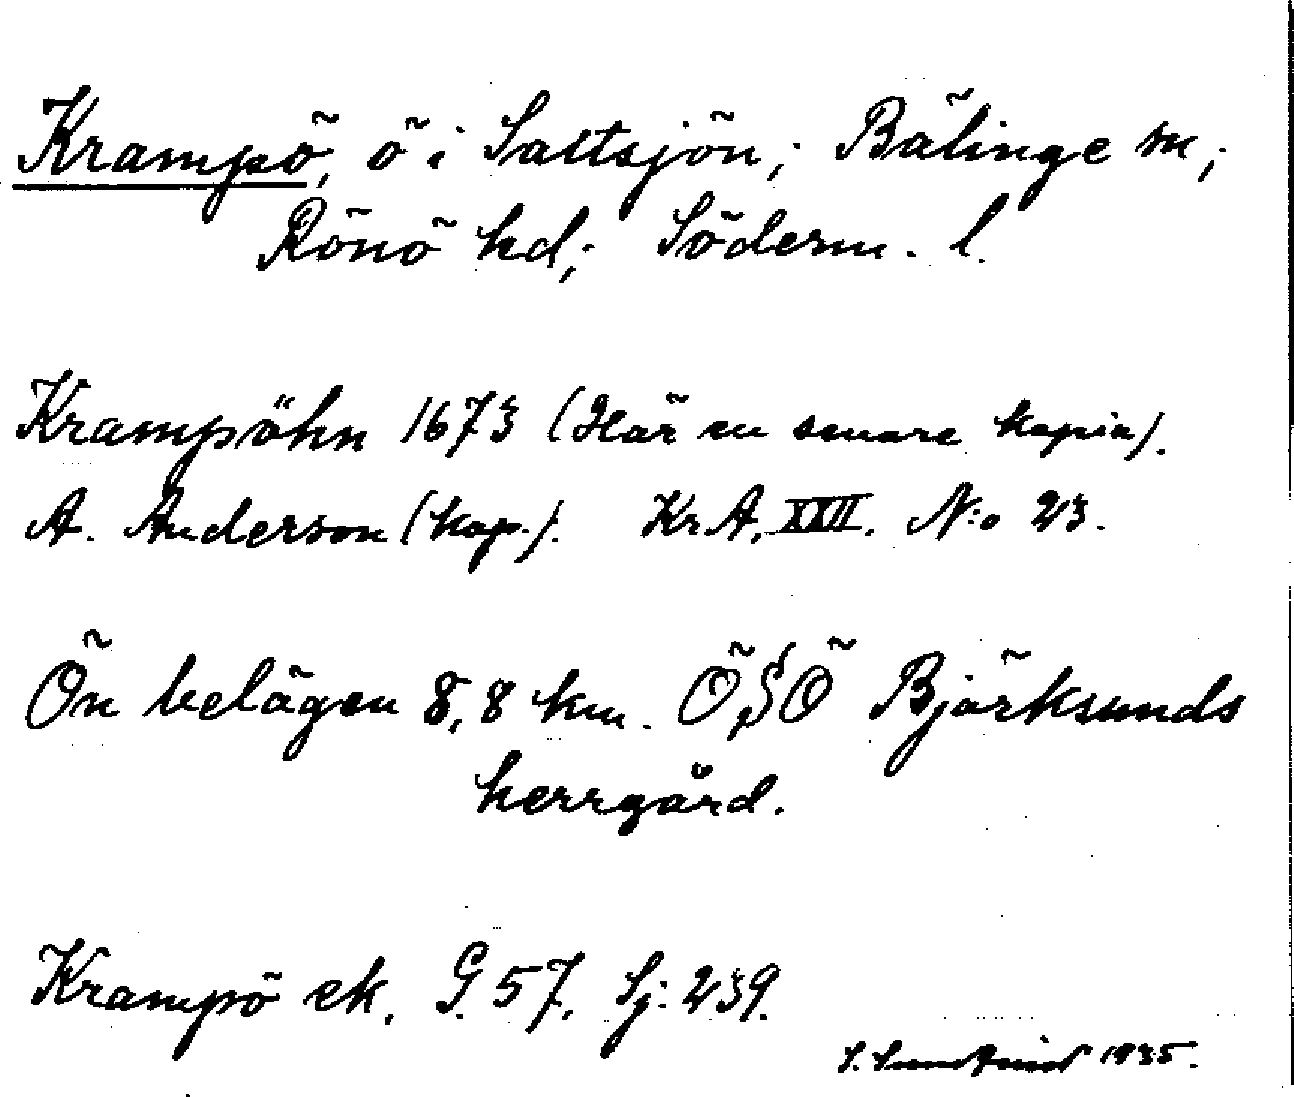 Krampö, ö i Saltsjön; Bälinge sn;
Rönö hd; Söderm. l.
Krampöhn 1673 (Här en senare kopia).
A. Anderson (kop.). Kr.A. XXII. N:o 23.
Ön belägen 8,8 km. ÖSÖ Björksunds
herrgård.
Krampö ek. G. 57. Sj: 239.
S. 1935.